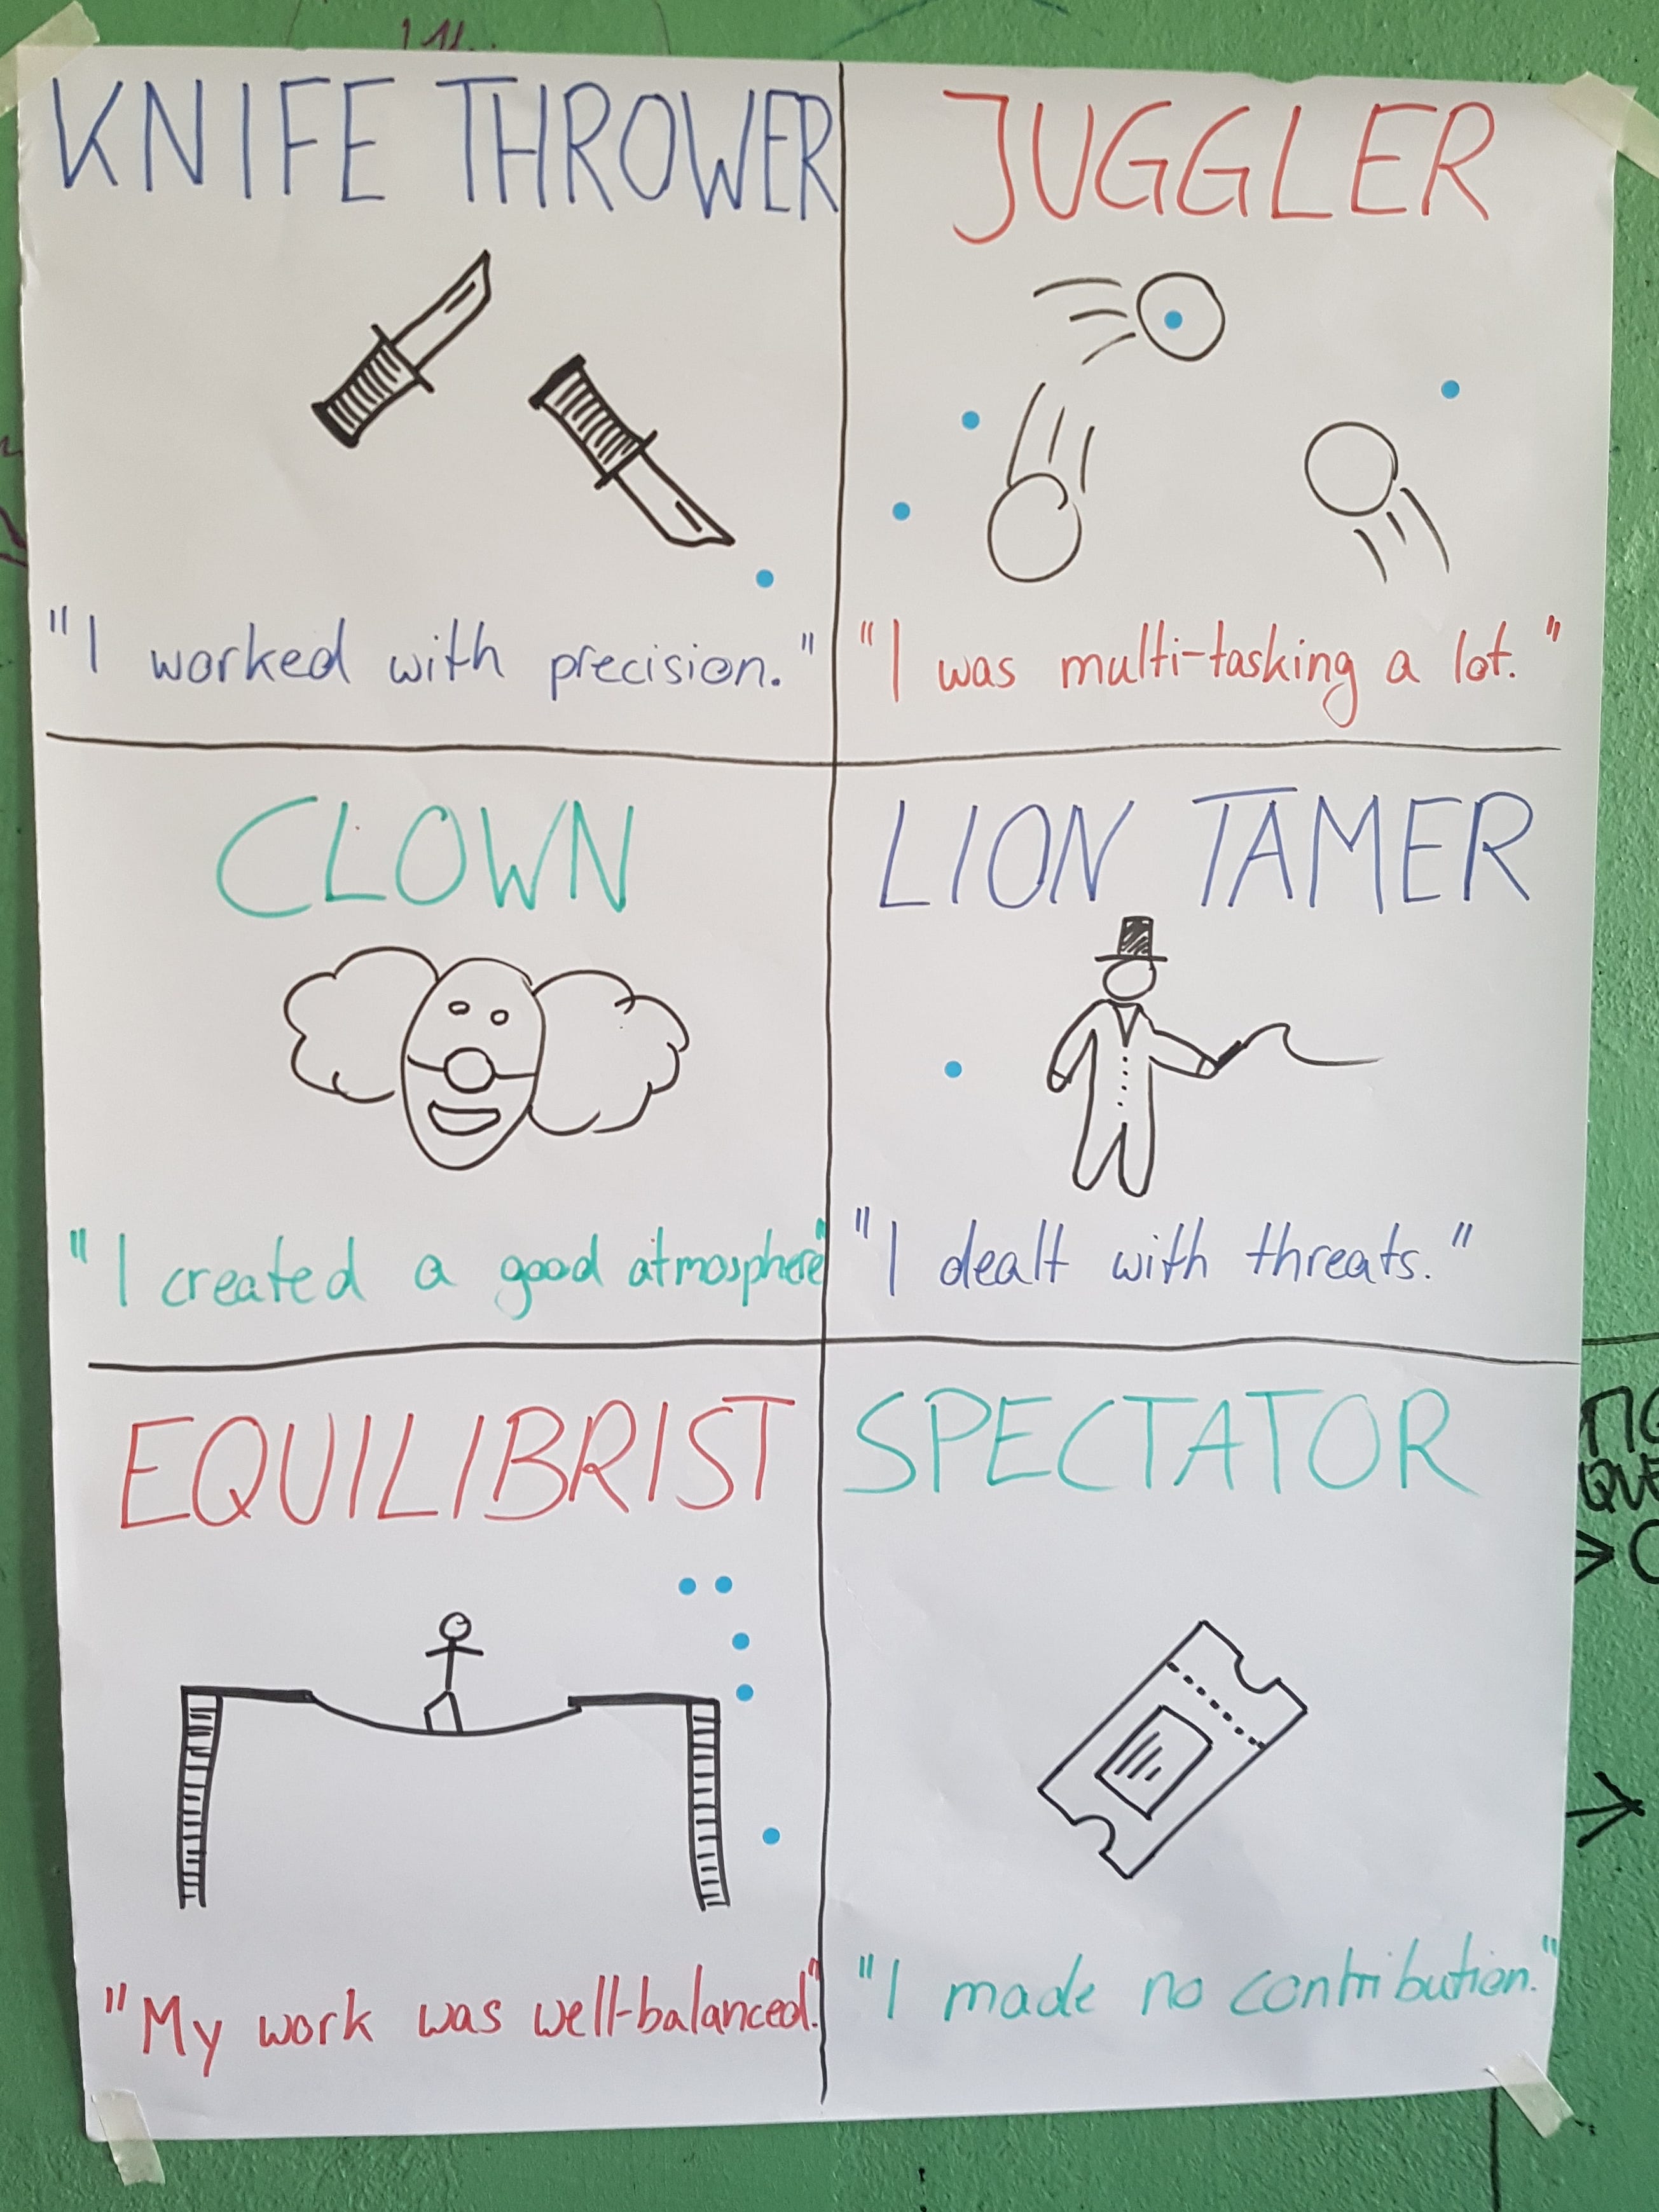 KNIFE THROWER
"I worked with precision."
JUGGLER
"I was multi-tasking a lot."
CLOWN
"I created a good atmosphere"
LION TAMER
"I dealt with threats."
EQUILIBRIST
"My work was well-balanced."
SPECTATOR
"I made no contribution."